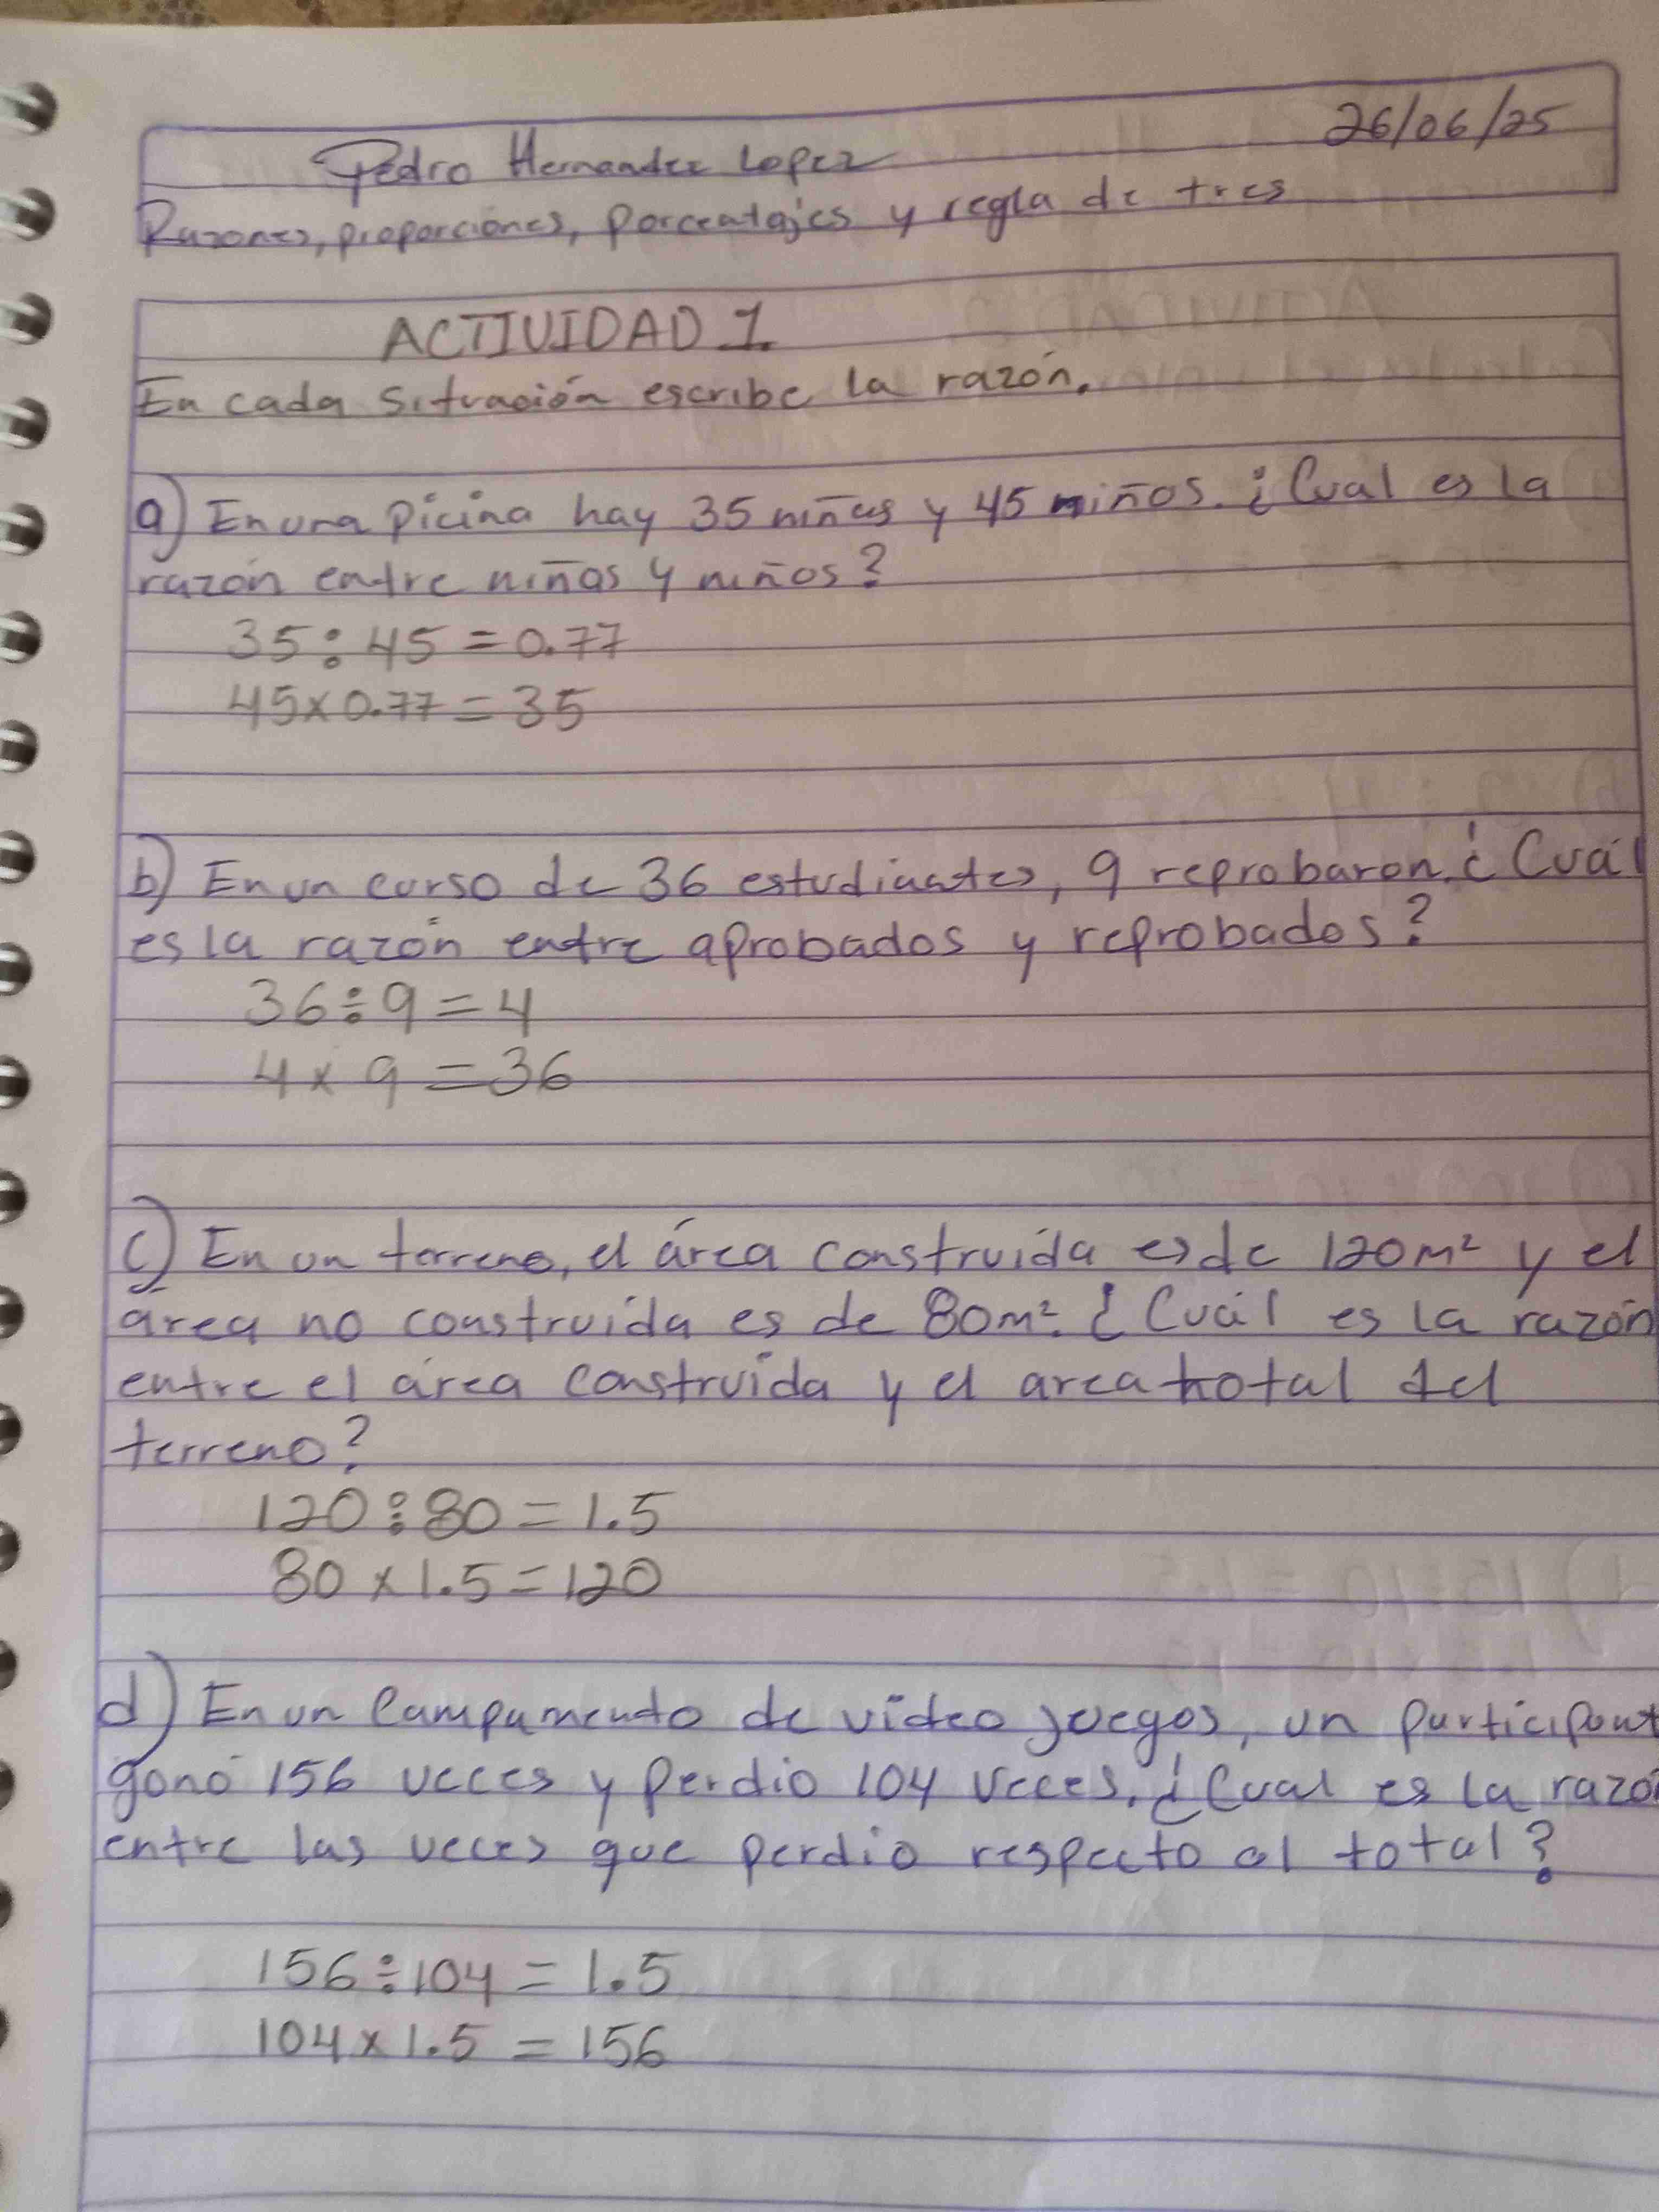 26/06/25
Pedro Hernandez Lopez
Razones, proporciones, porcentajes y regla de tres
ACTIVIDAD 1.
En cada situación escribe la razón.
a) En una picina hay 35 niñas y 45 niños. ¿Cual es la
razón entre niñas y niños?
35÷45=0.77
45x0.77=35
b) En un curso de 36 estudiantes, 9 reprobaron. ¿Cuál
es la razón entre aprobados y reprobados?
36÷9=4
4x9=36
c) En un terreno, el área construida es de 120m² y el
área no construida es de 80m². ¿Cuál es la razón
entre el área construida y el area total del
terreno?
120÷80=1.5
80x1.5=120
d) En un Campamento de video juegos, un participant
gano 156 veces y perdio 104 veces. ¿Cual es la razó
entre las veces que perdio respecto al total?
156÷104=1.5
104x1.5=156